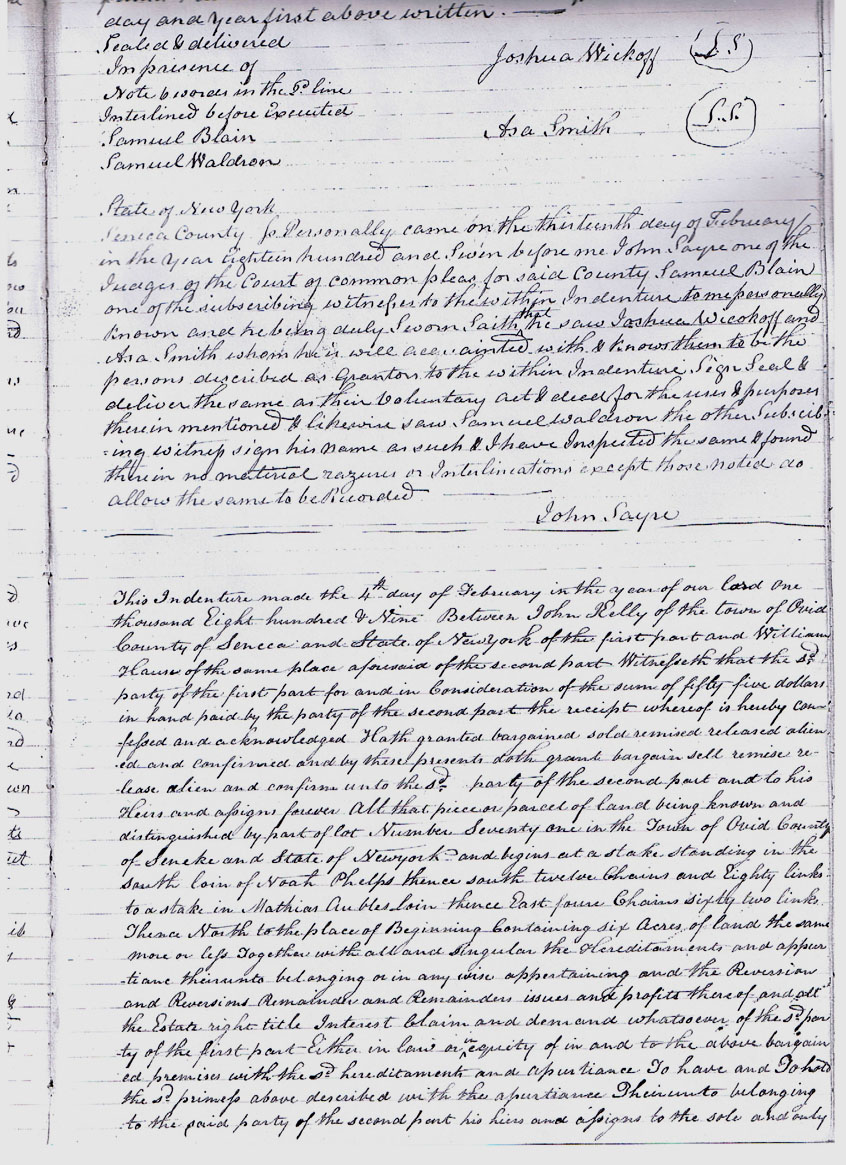 day and year first above written.
Sealed & delivered
In presence of
Joshua Wickoff (L.S)
Note 6 words in the 5d line
Interlined before Executed
Samuel Blain
Asa Smith (L.S.)
Samuel Waldron
State of New York
Seneca County Ss. Personally came on the thirteenth day of February
in the year Eighteen hundred and Seven before me John Sayre one of the
Judges of the Court of common pleas for said County Samuel Blain
one of the subscribing witnesses to the within Indenture to me personally
known and he being duly Sworn Saith that he saw Joshua Wicokoff and
Asa Smith whom he is will acquainted with & knows them to be the
persons described as Grantors to the within Indenture Sign Seal &
deliver the same as their Voluntary act & deed for the uses & purposes
therein mentioned & likewise saw Samuel Waldron the other Subscrib-
=ing witness sign his name as such & I have Inspected the same & found
therein no material razures or Interlineations except those noted do
allow the same to be Recorded
John Sayre
This Indenture made the 4th day of February in the year of our lord One
thousand Eight hundred & Nine Between John Kelly of the town of Ovid
County of Seneca and State of Newyork of the first part and William
Hause of the same place aforesaid of the second part Witnesseth that the sd
party of the first part for and in Consideration of the sum of fifty five dollars
in hand paid by the party of the second part the receipt whereof is hereby con-
-fessed and acknowledged Hath granted bargained sold remised released alien-
-ed and confirmed and by these presents doth grant bargain sell remise re-
-lease alien and confirm unto the sd party of the second part and to his
Heirs and assigns forever All that piece or parcel of land being known and
distinguished by part of lot Number Seventy one in the Town of Ovid County
of Seneke and State of Newyork and begins at a stake standing in the
south loin of Noah Phelps thence south twelve Chains and Eighty links
to a stake in Mathias Aubles loin thence East foure Chains sixty two links
Thence North to the place of Beginning Containing six Acres of land the same
more or less Together with all and singular the Hereditaments and appur
-tiane theirunto belonging or in any wise appertaining and the Reversion
and Reversions Remainder and Remainders issues and profits thereof and all
the Estate right title Interest Claim and demand whatsoever of the sd par
ty of the first part Either in law or in equity of in and to the above bargain
ed premises with the sd hereditaments and apurtiance To have and To hold
the sd primess above described with the apurtiance Theirunto belonging
to the said party of the second part his heirs and assigns to the sole and only